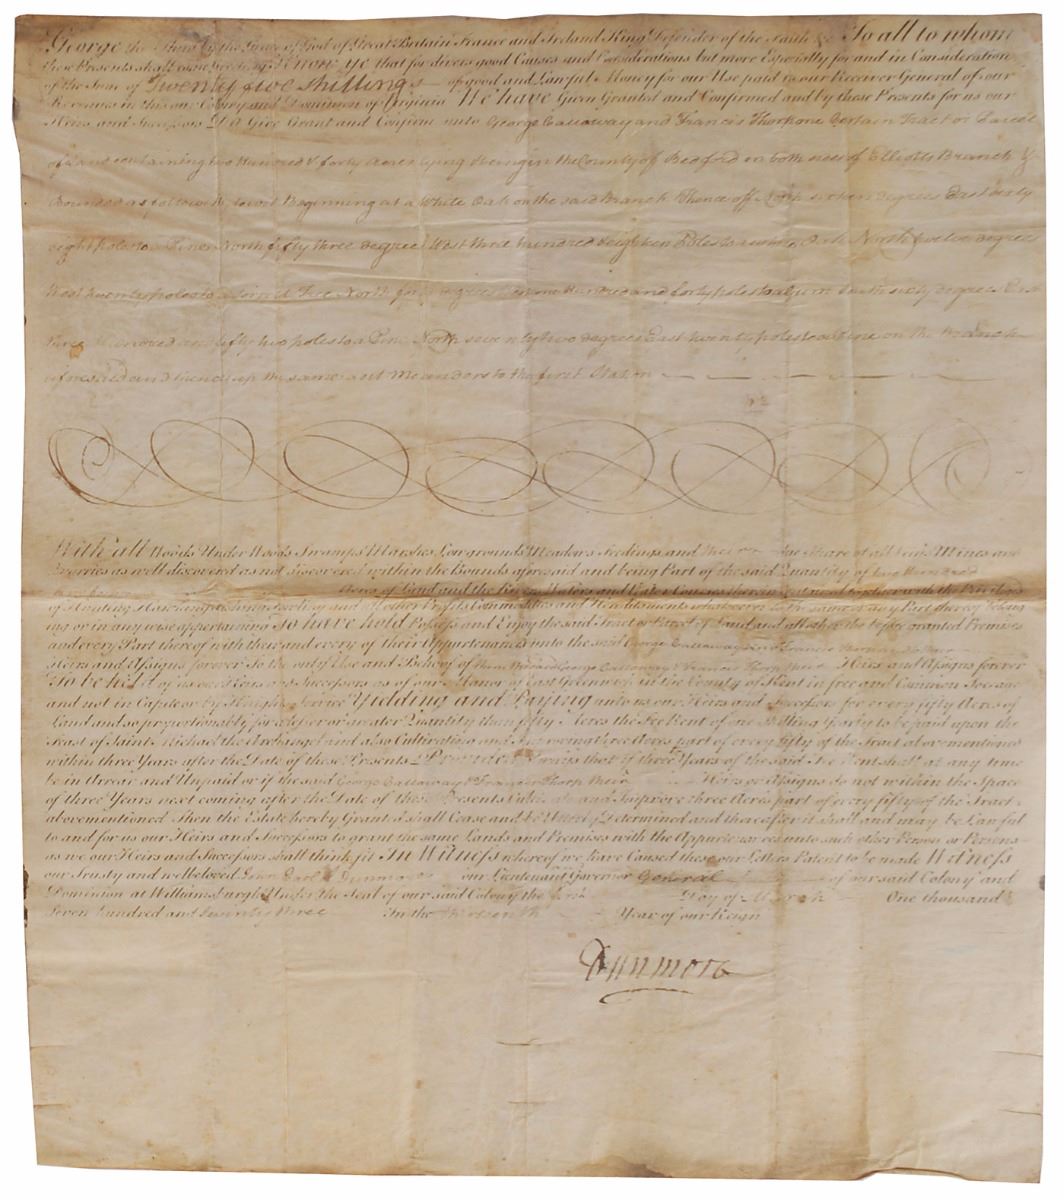 George the Third by the Grace of God of Great Britain France and Ireland King Defender of the Faith &c To all to whom
these Presents shall come Greeting Know ye that for divers good Causes and Considerations but more Especially for and in Consideration
of the Sum of Twenty five Shillings of good and Lawful Money for our Use paid to our Receiver General of our
Revenues in this our Colony and Dominion of Virginia We have Given Granted and Confirmed and by these Presents for us our
Heirs and Successors Do Give Grant and Confirm unto George Callaway and Francis Thorp one Certain Tract or Parcel
of Land containing two Hundred & forty acres lying & being in the County of Bedford on both sides of Elliotts Branch &
Bounded as followeth towit Beginning at a White Oak on the said Branch Thence off North sixteen degrees East sixty
eight poles to a Pine North fifty three degrees West three hundred & eighteen Poles to a white Oak North twelve degrees
West twenty poles to a North degrees one Hundred and forty poles to a sixty degrees East
three Hundred and fifty two poles to a Pine North seventy two degrees East twenty poles to a Pine on the Branch
aforesaid and thence up the same as it Meanders to the first Station
With all Woods Under Woods Swamps Marshes Lowgrounds Meadows Feedings and his due Share of all Veins Mines and
Quarries as well discovered as not discovered within the Bounds aforesaid and being Part of the said Quantity of two Hundred
Acres of Land and the Rivers Waters and Water Courses therein contained together with the Privileges
of Hunting Hawking Fishing Fowling and all other Profits Commodities and Hereditaments whatsoever to the same or any Part thereof belong
ing or in any wise appertaining To have hold Possess and Enjoy the said Tract or Parcel of Land and all other the before granted Premises
and every Part thereof with their and every of their Appurtenances unto the said George Callaway and Francis Thorp & to their
Heirs and Assigns forever To the only Use and Behoof of them the said George Callaway & Francis Thorp their Heirs and Assigns forever
To be held of us our Heirs and Successors as of our Manor of East Greenwich in the County of Kent in free and Common Soccage
and not in Capite or by Knights Service Yielding and Paying unto us our Heirs and Successors for every fifty Acres of
Land and so proportionably for a lesser or greater Quantity than fifty Acres the Fee Rent of one Shilling Yearly to be paid upon the
Feast of Saint Michael the Archangel and also Cultivating and Improving three Acres part of every fifty of the Tract abovementioned
within three Years after the Date of these Presents Provided always that if three Years of the said Fee Rent shall at any time
be in Arrear and Unpaid or if the said George Callaway & Francis Thorp their Heirs or Assigns do not within the Space
of three Years next coming after the Date of these Presents Cultivate and Improve three Acres part of every fifty of the Tract
abovementioned Then the Estate hereby Granted shall Cease and be Utterly Determined and thereafter it shall and may be Lawful
to and for us our Heirs and Successors to grant the same Lands and Premises with the Appurtenances unto such other Person or Persons
as we our Heirs and Successors shall think fit In Witness whereof we have Caused these our Letters Patent to be made Witness
our Trusty and welbeloved John Earl of Dunmore our Lieutenant Governor General of our said Colony and
Dominion at Williamsburgh Under the Seal of our said Colony the first Day of March One thousand
Seven hundred and Seventy three In the thirteenth Year of our Reign
Dunmore